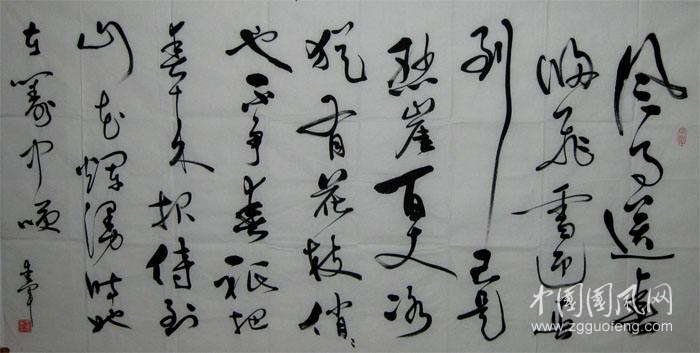 风雨送春
归飞雪迎春
到 已是
悬崖百丈冰
犹有花枝俏〻
也不争春祗把
春来报待到
山花爛漫时她
在叢中咲
中国国风网
www.zgguofeng.com